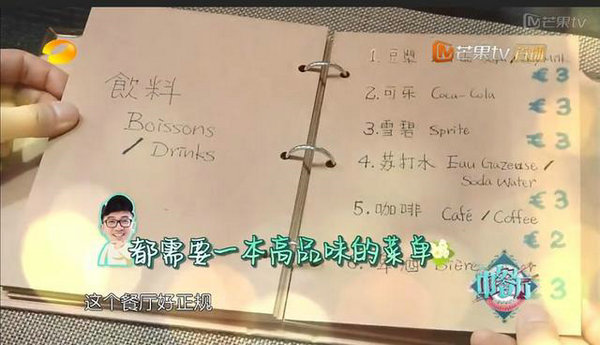 芒果tv
芒果tv
飲料
Boissons
/ Drinks
1. 豆漿
€ 3
2. 可乐 Coca-Cola
€ 3
3. 雪碧 Sprite
€ 3
4. 苏打水 Eau Gazeuse/
Soda Water
€ 3
5. 咖啡 Café / Coffee
€ 2
Bière
€ 3
都需要一本高品味的菜单
这个餐厅好正规